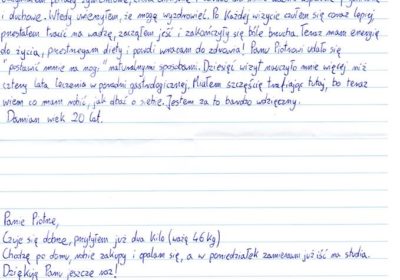 i duchowe. Wtedy uwierzyłem, że mogę wyzdrowieć. Po każdej wizycie czułem się coraz lepiej,
przestałem tracić na wadze, zacząłem jeść i zakończyły się bóle brzucha. Teraz mam energię
do życia, przestrzegam diety i powoli wracam do zdrowia! Panu Piotrowi udało się
"postawić mnie na nogi" naturalnymi sposobami. Dziesięć wizyt nauczyło mnie więcej niż
cztery lata leczenia w poradni gastrologicznej. Miałem szczęście trafiając tutaj, bo teraz
wiem co mam robić, jak dbać o siebie. Jestem za to bardzo wdzięczny.
Damian wiek 20 lat.
Panie Piotrze,
Czuje się dobrze, przytyłem już dwa kilo (ważę 46 kg)
Chodzę po domu, robie zakupy i opalam się, a w poniedziałek zamierzam już iść na studia.
Dziękuję Panu jeszcze raz!